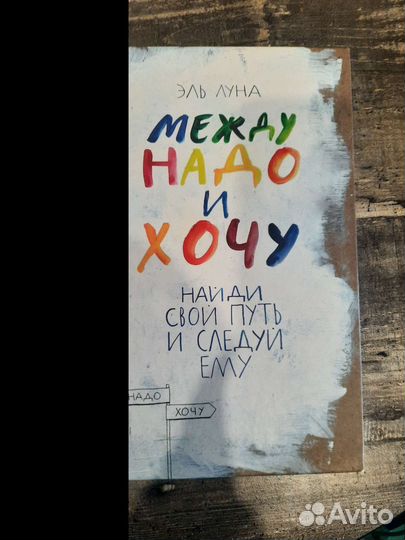 ЭЛЬ ЛУНА
МЕЖДУ
НАДО
И
ХОЧУ
НАЙДИ
СВОЙ ПУТЬ
И СЛЕДУЙ
ЕМУ
НАДО
ХОЧУ
Avito